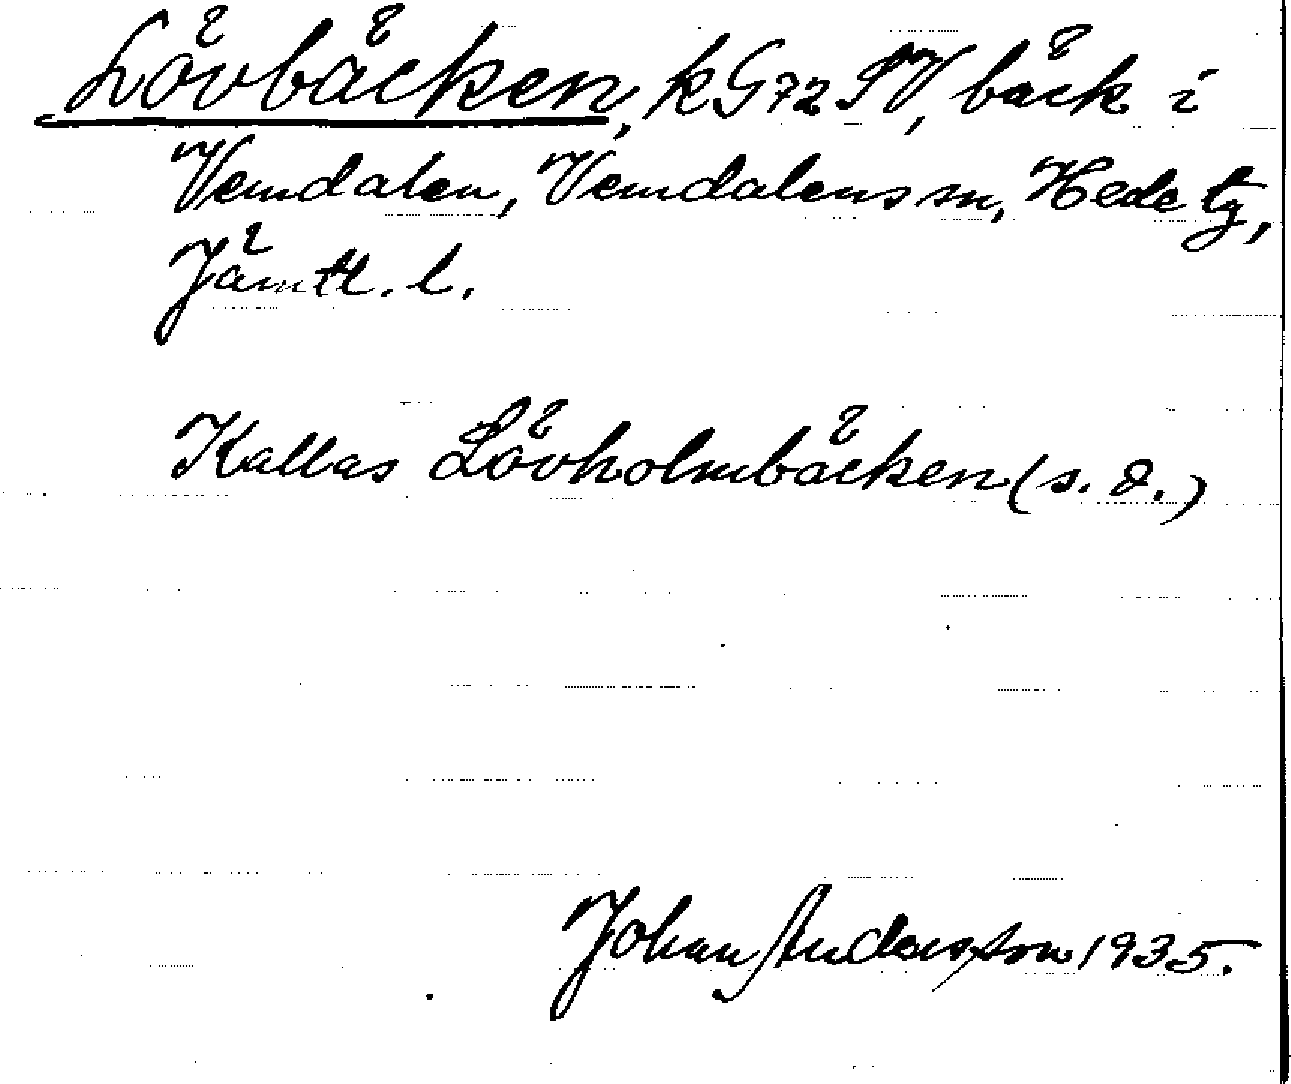 Lövbäcken, kG72 SV, bäck i
Vemdalen, Vemdalens sn, Hede tg,
Jämtl. l.
Kallas Lövholmbäcken (s. d.)
Johan Andersson 1935.